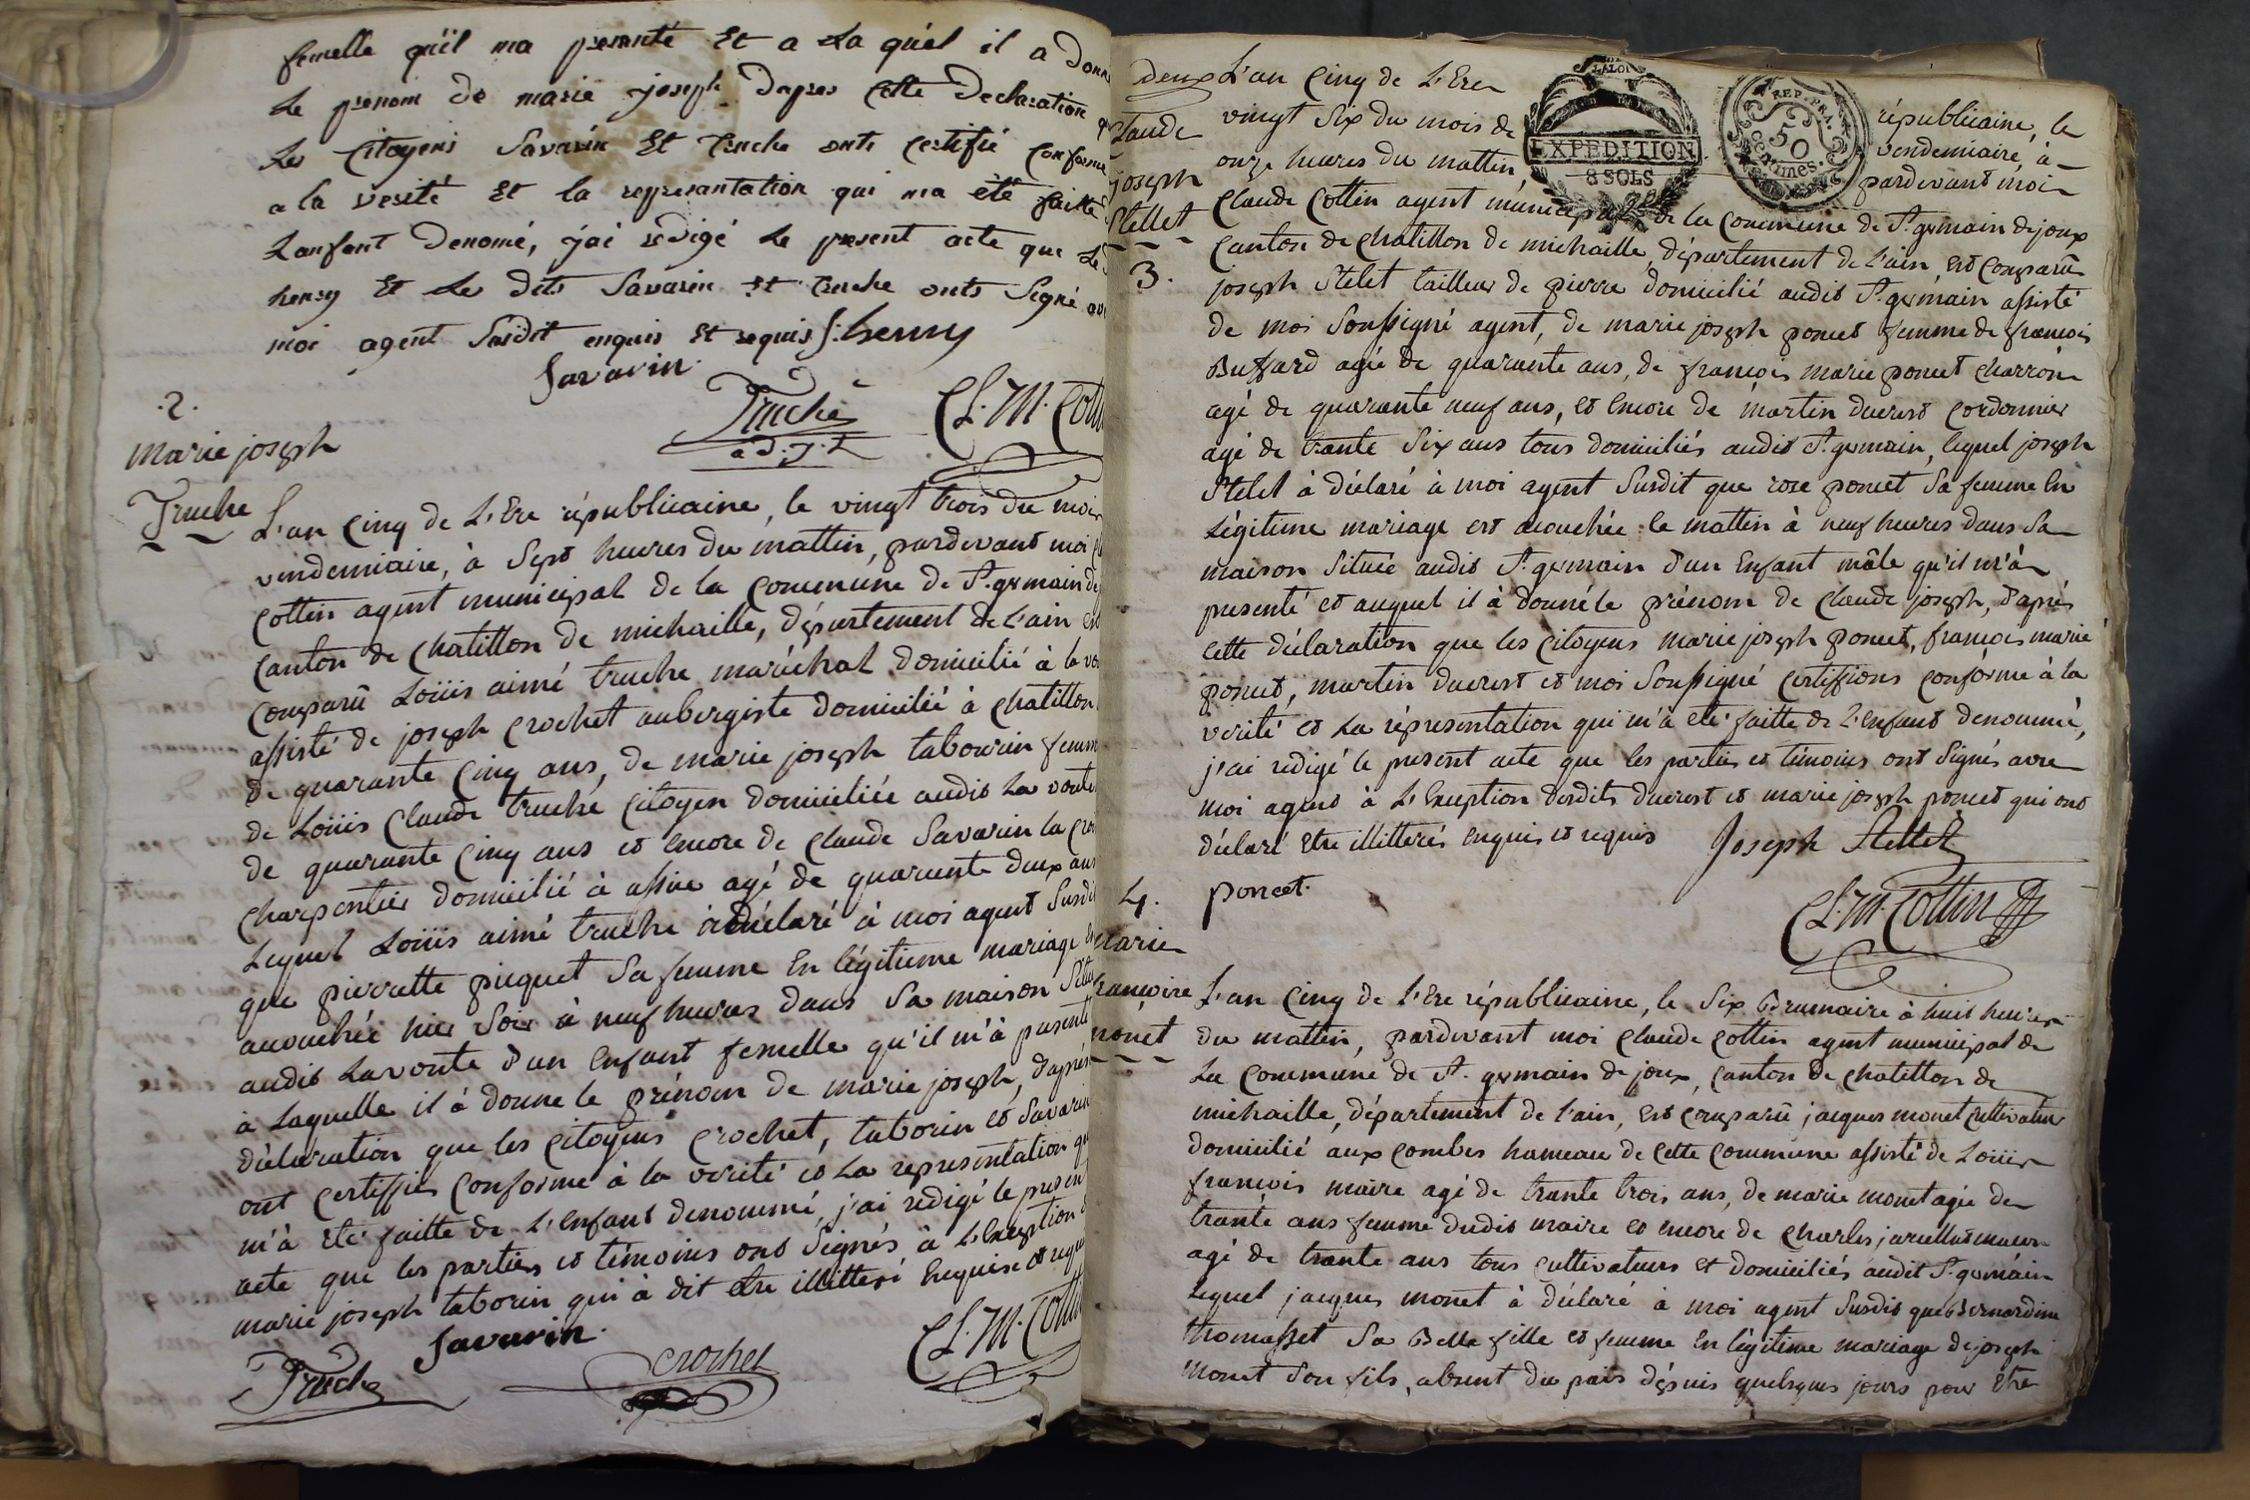 femelle qu'il ma presanté Et a La quel il a donn
Le prenom de marie joseph. Dapres Cette Declaration
Les Citoyens Savarin Et truche onts Certifié Conforme
a la verité Et la representation qui ma été faitte
Lanfent Denomé, j'ai redigé Le present acte que Le
henry Et Le dits Savarin Et truche onts Signé
moi agent Susdit enquis Et requis f. henry
Savarin
Truche
a d. j. t
CL. M. Cott
.2.
marie joseph
Truche
L'an Cinq de L'Ere républicaine, le vingt trois du mois
vendemiaire, à Sept heures du mattin, pardevant moi
Cottin agent municipal de la Commune de St. germain de
Canton de Chatillon de michaille, département de L'ain est
Comparû Loüis aimé truche maréchal domicilié à la vo
assisté de joseph Crochet aubergiste domicilié à Chatillon
de quarante Cinq ans, de marie joseph tabourin femm
de Loüis Claude truche Citoyen domiciliée audit La voute
de quarante Cinq ans et encore de Claude Savarin la
Charpentier domicilié à assine agé de quarante deux ans
Lequel Loüis aimé truche à déclaré à moi agent Susdi
que pierrette picquet Sa femme En légitieme mariage
acouchée hier Soir à neuf heures dans Sa maison
audit Lavoute d'un Enfant femelle qu'il m'à presenté
à Laquelle il à donne le prénom de marie joseph, d'après
déclaration que les Citoyens Crochet, taborin et Savarin
ont Certiffiés Conforme à la verité et La representation qu
m'à eté faitte de L'Enfant denommé, j'ai redigé le presen
acte que les parties et témoins ont Signés à L'Exeption
marie joseph taborin qui à dit etre illitteré Enquise et requi
Truche
Savarin
Crochet
CL. M. Cotti
deux
L'an Cinq de L'Ere
républicaine, le
vingt Six du mois de
vendemiaire, à
onze heures du mattin,
pardevant moi
LALOI
EXPEDITION
8 SOLS
REP. FRA.
50
Centimes.
Claude
joseph
Stellet
3.
Claude Cottin agent municipal de la Commune de St. germain dejoux
Canton de Chatillon de michaille, département de L'ain, est Comparû
joseph Stelet tailleur de pierre domicilié audit St. germain assisté
de moi Soussigné agent, de marie joseph poncet femme de francois
Buffard agée de quarante ans, de francois marie poncet Charron
agé de quarante neuf ans, et Encore de martin ducrest Cordonnier
agé de trante Six ans tous domiciliés audit St. germain, lequel joseph
Stelet à déclaré à moi agent Susdit que rose poncet Sa femme En
Légitieme mariage est acouchée le mattin à neuf heures dans Sa
maison Située audit St. germain d'un Enfant mâle qu'il m'à
presenté et auquel il à donné le prénom de Claude joseph, d'après
Cette déclaration que les Citoyens marie joseph poncet, francois marie
poncet, martin ducrest et moi Soussigné Certiffions Conforme à la
verité et La représentation qui m'à eté faitte de L'Enfant denommé,
j'ai redigé le present acte que les parties et témoins ont Signés avec
moi agent à L'Exeption desdits ducrest et marie joseph poncet qui ont
déclaré Etre illitterés Enquis et requis
Joseph Stellet
poncet.
CL. M. Cottin
4.
marie
francoise
monet
L'an Cinq de L'Ere républicaine, le Six Brumaire à huit heures
du mattin, pardevant moi Claude Cottin agent municipal de
La Commune de St. germain de joux, Canton de Chatillon de
michaille, département de L'ain, est Comparû jacques monet Cultivateur
domicilié aux Combes hameau de Cette Commune assisté de Loüis
francois maire agé de trante trois ans, de marie monet agée de
trante ans femme dudit maire et encore de Charles
agé de trante ans tous Cultivateurs et domiciliés audit St. germain
Lequel jacques monet à déclaré à moi agent Susdit que Bernardine
thomasset Sa Belle fille et femme En légitieme mariage de joseph
monet Son fils, absent du païs dépuis quelques jours pour Etre